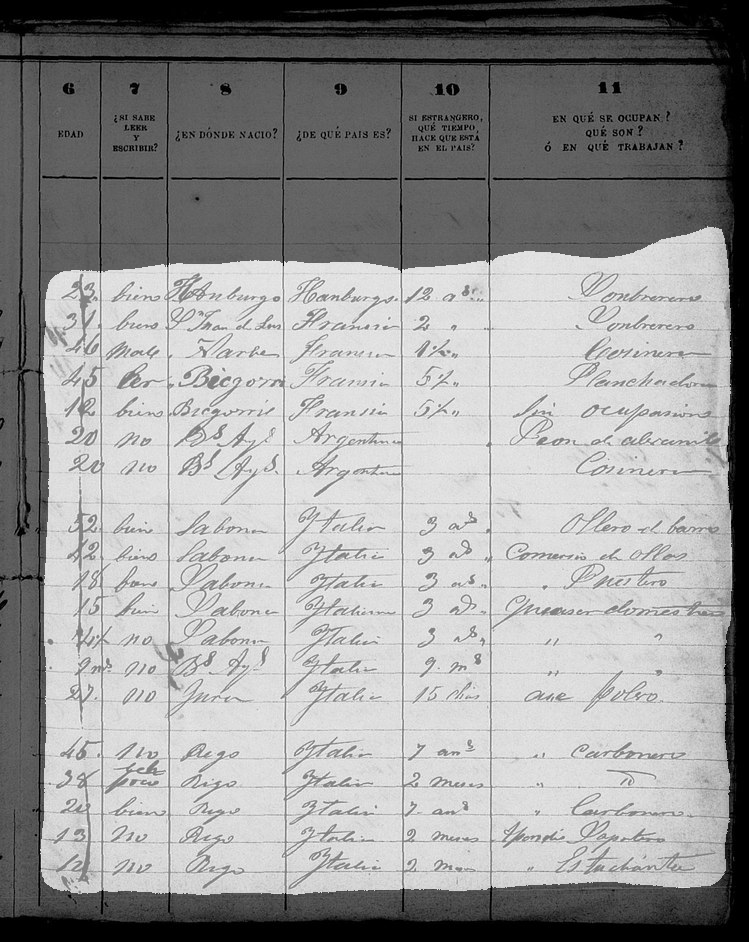 6 7 8 9 10 11
EDAD ¿SI SABE LEER Y ESCRIBIR? ¿EN DÓNDE NACIO? ¿DE QUÉ PAIS ES? SI ESTRANGERO, QUÉ TIEMPO HACE QUE ESTÁ EN EL PAIS? EN QUÉ SE OCUPAN? QUÉ SON? Ó EN QUÉ TRABAJAN?
23. biens Hanburgo Hanburgo. 12 as Sonbrerero
31. biens Sn Juan d Lus Fransia 2 " Sonbrerero
46 Fransia Cosinera
45 Ler Bicgorri Fransia 5 Planchadora
12 biens Bicgorris Fransia 5 Sin ocupasions
20 no Bs Ays Argentina Peon de
20 no Bs Ays. Argentina Cosinera
52. bien Sabona Ytalia 3 as Ollero d barro
42. biens Sabona Ytalia 3 as Comersio d ollas
18. Sabona Ytalia 3 as. " Puestero
15 bien Sabona Ytaliana 3 as.
no Sabona Ytalia 3 as. " "
9 ms no Bs Ays Ytalia 9. ms " "
27. no Ytalia 15 dias
45. no Rigo Ytalia 7 ans " Carbonero
38 poco Rigo Ytalia 2 meses "
20 biens Rigo Ytalia 7 ans " Carbonero.
13 no Rigo Ytalia 2 meses Sapatero
12 no Rigo Ytalia 2 "